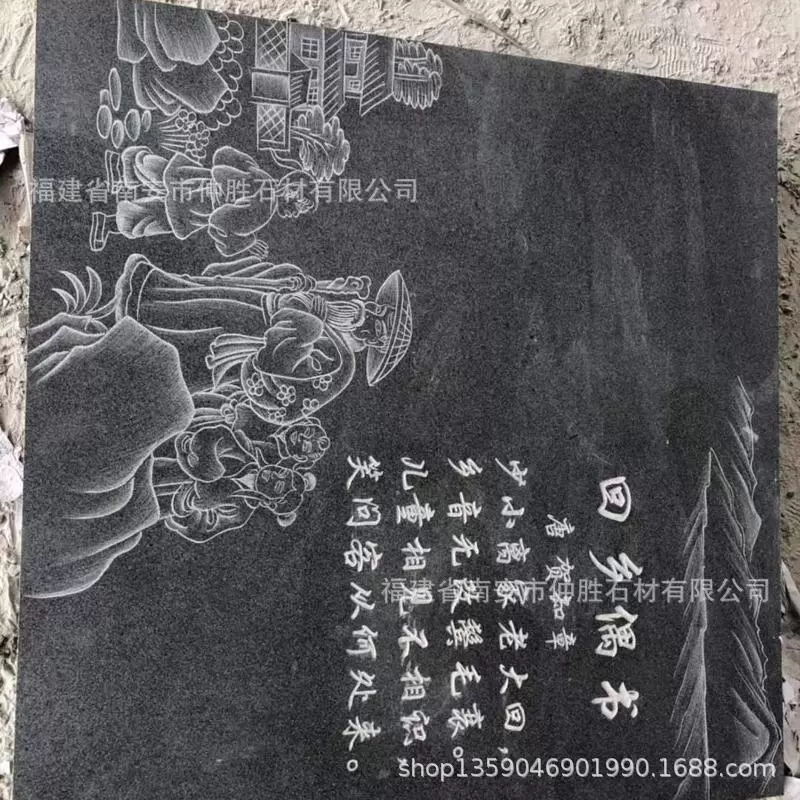 回乡偶书
唐 贺知章
少小离家老大回，
乡音无改鬓毛衰。
儿童相见不相识，
笑问客从何处来。
福建省南安市仲胜石材有限公司
福建省南安市仲胜石材有限公司
shop1359046901990.1688.com